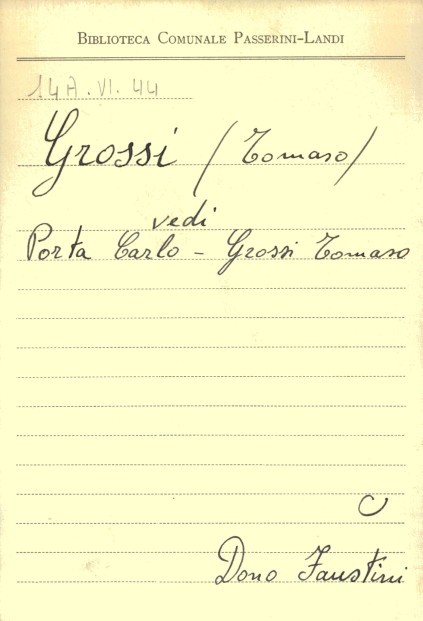 BIBLIOTECA COMUNALE PASSERINI-LANDI
14A.VI.44
Grossi (Tomaso)
vedi
Porta Carlo - Grossi Tomaso
C
Dono Faustini